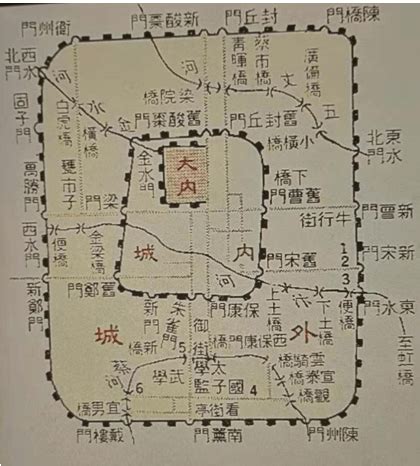 陳橋門
封丘門
新酸棗門
衛州門
西北水門
固子門
萬勝門
西水門
新鄭門
河
白虎橋
水
橫橋
金
雙市子
梁門
金水門
梁院橋
河
青暉橋
蔡市橋
廣備橋
丈
五
舊封丘門
舊酸棗門
小橫橋
東北水門
大內
下橋
舊曹門
新曹門
牛行街
便橋
金梁橋
城
內
舊宋門
新宋門
1
2
3
河
汴
上土橋
下土橋
便橋
東水門
至虹橋
舊鄭門
新門
朱雀門
御街
保康門
城
外
新橋
5
蔡河
6
武學
太學
國子監
4
西保康門橋
雲騎橋
宣泰橋
觀橋
看街亭
宜男橋
戴樓門
南薰門
陳州門